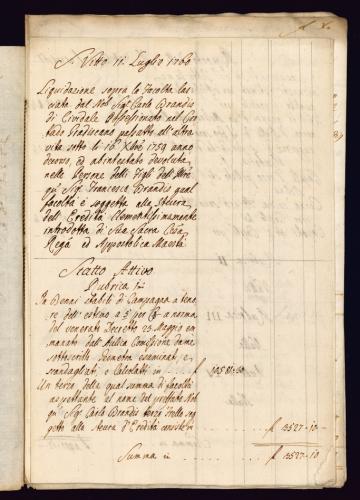 S. Vitto 11 Luglio 1760
Liquidazione sopra le facoltà las
ciate dal Nob. Sigr. Carlo Brandis
di Cividale possesionato nel Con
tado Gradiscano passato all'altra
vita sotto li 16 Xbre 1759 anno
decorso, ed abintestato devoluta
nelle Persone delli Figli dell'
qm Sigr. Francesco Brandis qual
facoltà è soggetta alla Steura
dell' Eredità Clementissimamente
introdotta di Sua Sacra Ces.a
Rega. ed Appostolica Maestà
Statto Attivo
Rubrica 1ma
In Bennj stabili di Campagna a teno
re dell' estimo a 5 per Co a norma
del venerato Decretto 23 Maggio em
manato dall' Aulica Comissione dame
sottoscritto esaminati, e
scandagliati e Calcolatti in f 13581-30
Un terzo della qual summa di facoltà
aspettante al nome del prefatto Nob.
qm Sigr. Carlo Brandis sog
getto alla Steura d'Eredità consiste in f 4527-10
Summa in f 4527-10